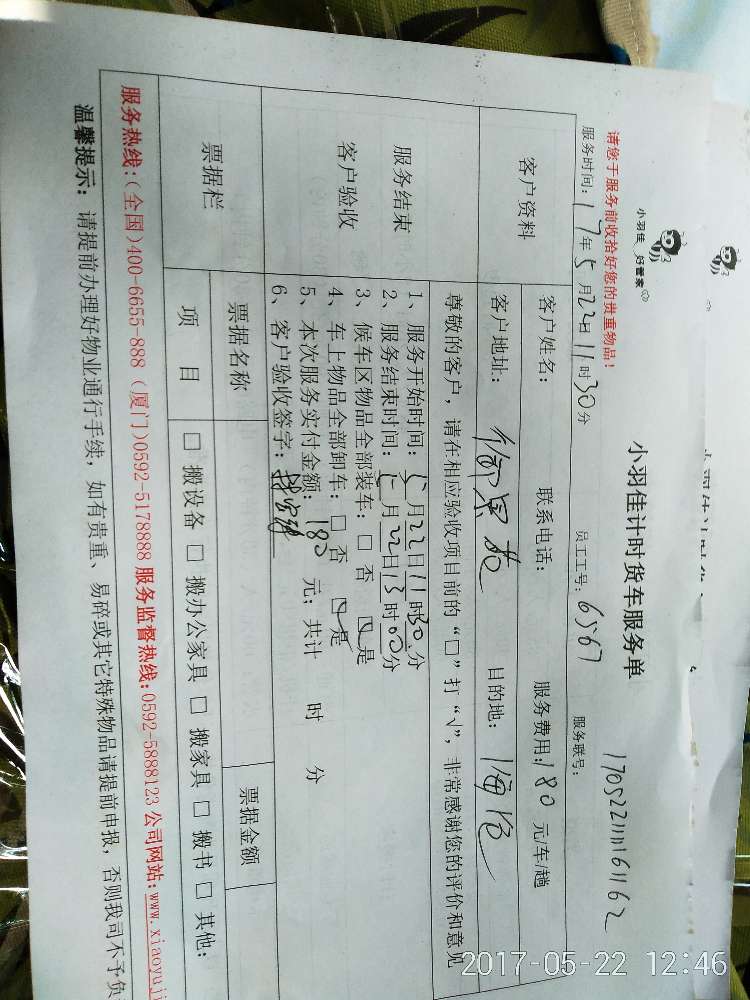 小羽佳 好管家
小羽佳计时货车服务单
17052211116162
请您于服务前收拾好您的贵重物品！
服务时间：17年5月22日11时30分 员工工号：6567 服务联号：
客户资料
客户姓名： 联系电话： 服务费用：180 元/车/趟
客户地址： 目的地：
尊敬的客户，请在相应验收项目前的“□”打“√”，非常感谢您的评价和意见
服务结束
客户验收
1、服务开始时间：5月22日11时30分
2、服务结束时间：5月22日13时00分
3、候车区物品全部装车：□ 否 ☑ 是
4、车上物品全部卸车：□ 否 ☑ 是
5、本次服务实付金额：180 元；共计 时 分
6、客户验收签字：
票据栏
票据名称 票据金额
项 目 □ 搬设备 □ 搬办公家具 □ 搬家具 □ 搬书 □ 其他：
服务热线：(全国)400-6655-888 (厦门)0592-5178888 服务监督热线：0592-5888123 公司网站：www.xiaoyuji
温馨提示： 请提前办理好物业通行手续，如有贵重、易碎或其它特殊物品请提前申报，否则我司不予负
2017-05-22 12:46